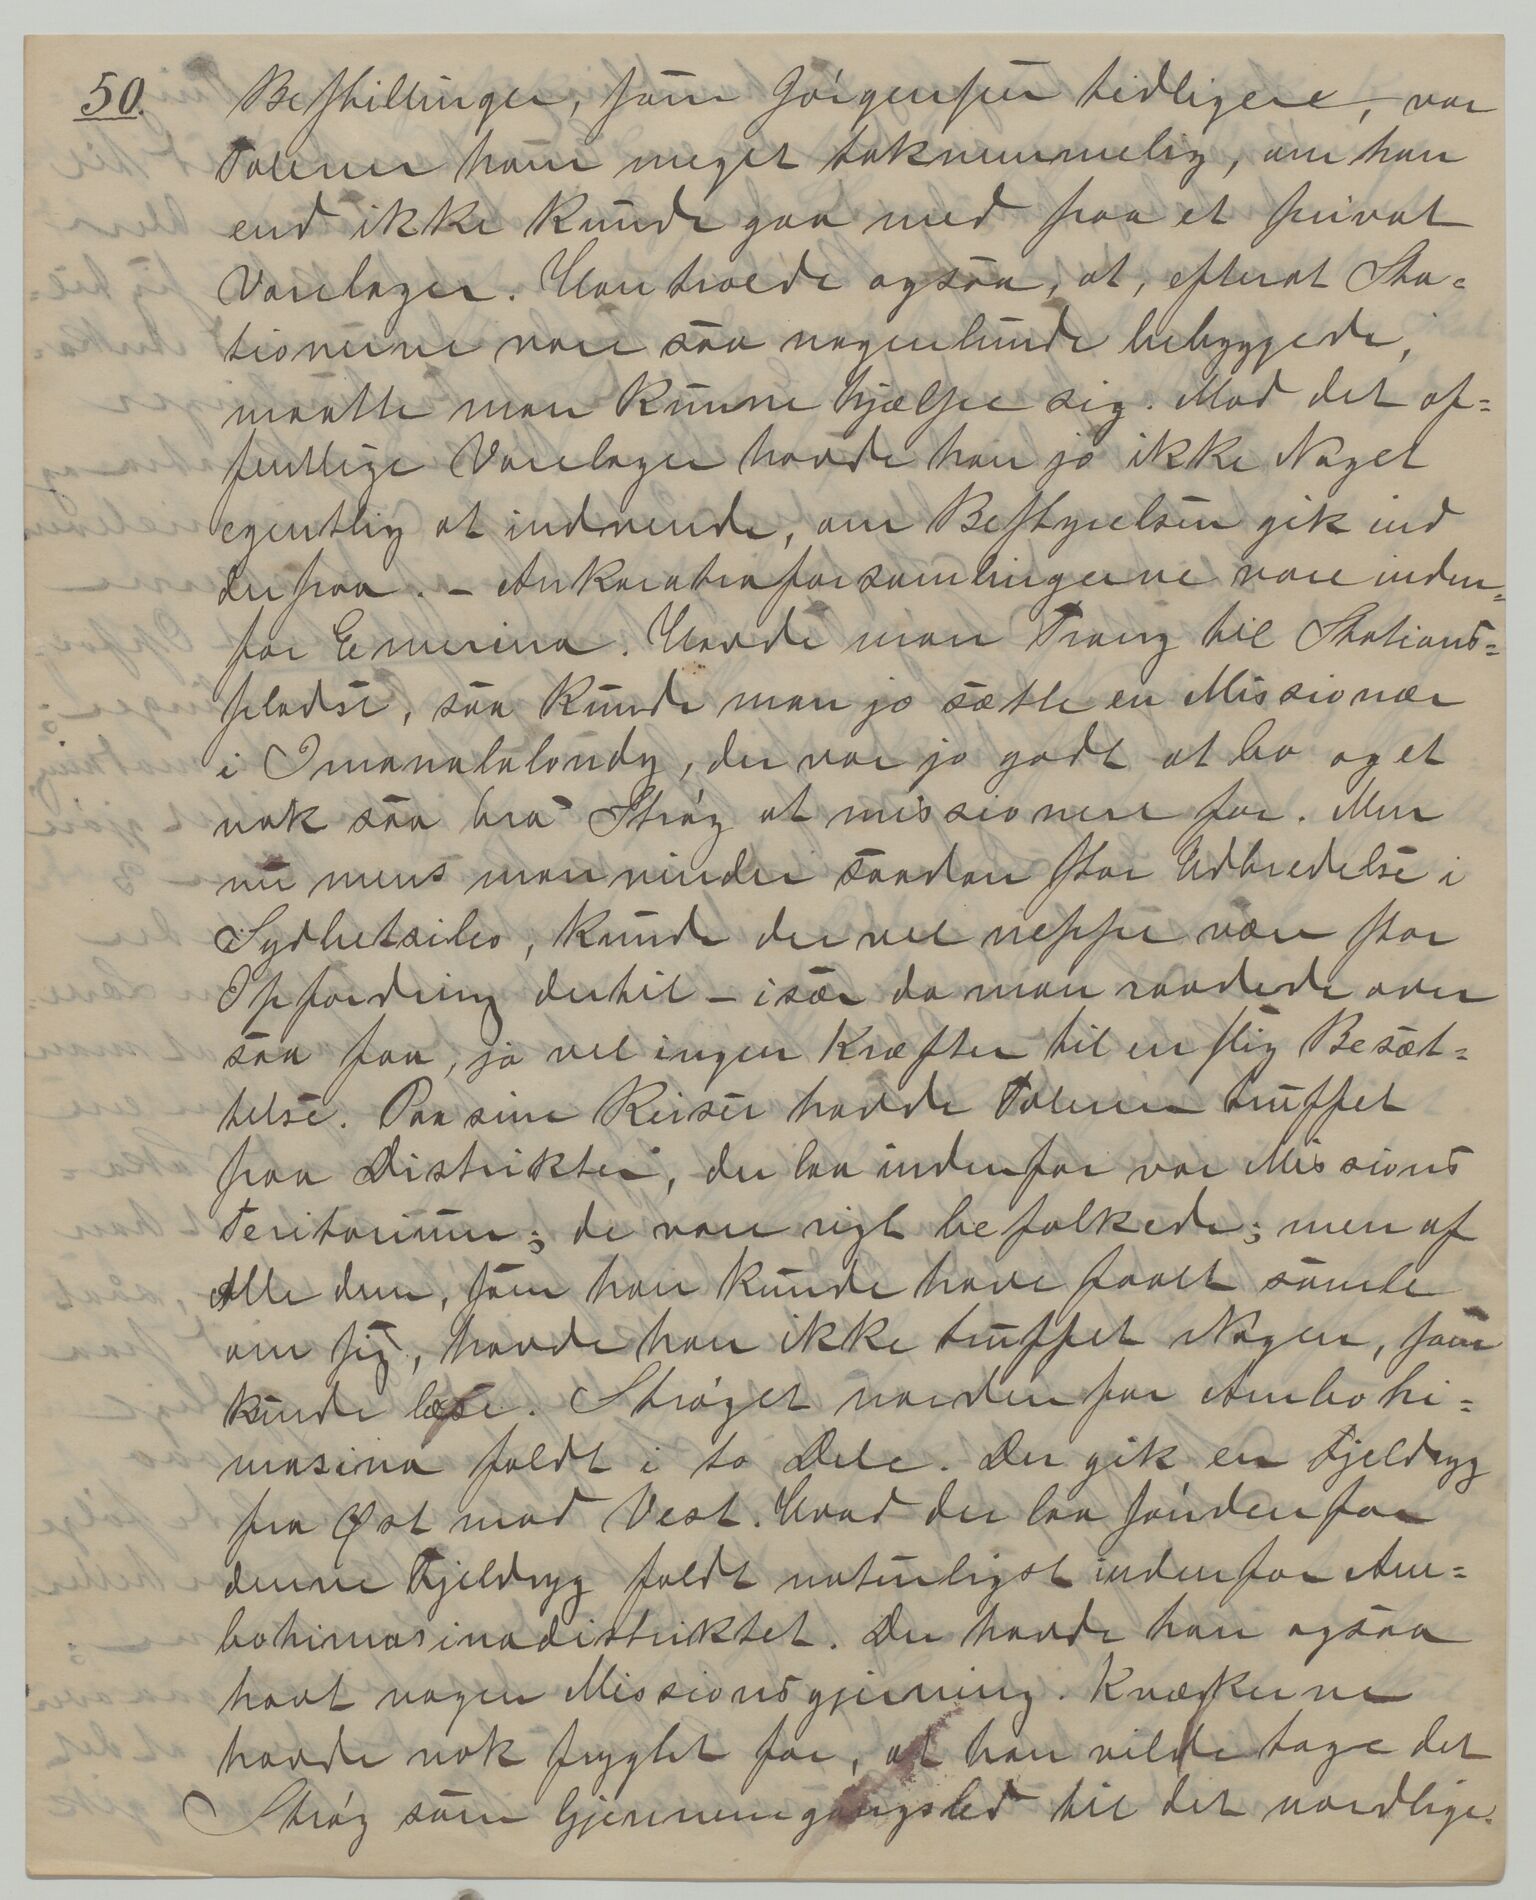 50. Bestillinger, som Jörgensen tidligere, var
Taleren ham meget taknemmelig, om han
end ikke kunde gaa med paa et privat
Varelager. Han troede ogsaa, at, efterat Sta-
tionerne vare saa nogenlunde bebyggede,
maatte man kunne hjælpe sig. Mod det of-
fentlige Varelager havde han jo ikke Noget
egentlig at indvende, om Bestyrelsen gik ind
derpaa. – Ankaratraforsamlingerne vare inden-
for Emerina. Havde man Trang til Stations-
pladse, saa kunde man jo sætte en Missionær
i Imanalalondy, der var jo godt at bo og et
nok saa bra Strøg at missionere for. Men
nu mens man vinder saadan stor Udbredelse i
Sydbetsileo, kunde der vel neppe være stor
Opfordring dertil – især da man raadede over
saa faa, ja vel ingen Kræfter til en slig Besæt-
telse. Paa sine Reiser havde Taleren truffet
paa Distrikter, der laa indenfor vor Missions
Teritorium; de vare rigt befolkede; men af
Alle dem, som han kunde have faaet samle
om sig, havde han ikke truffet Nogen, som
kunde læse. Strøget nordenfor Ambohi-
masina faldt i to Dele. Der gik en Fjeldryg
fra Øst mod Vest. Hvad der laa søndenfor
denne Fjeldryg faldt naturligst indenfor Am-
bohimasinadistriktet. Der havde han ogsaa
havt nogen Missionsgjerning. Kvækerne
havde nok frygtet for, at han vilde tage det
Strøg som Gjennemgangsled til det nordlige.